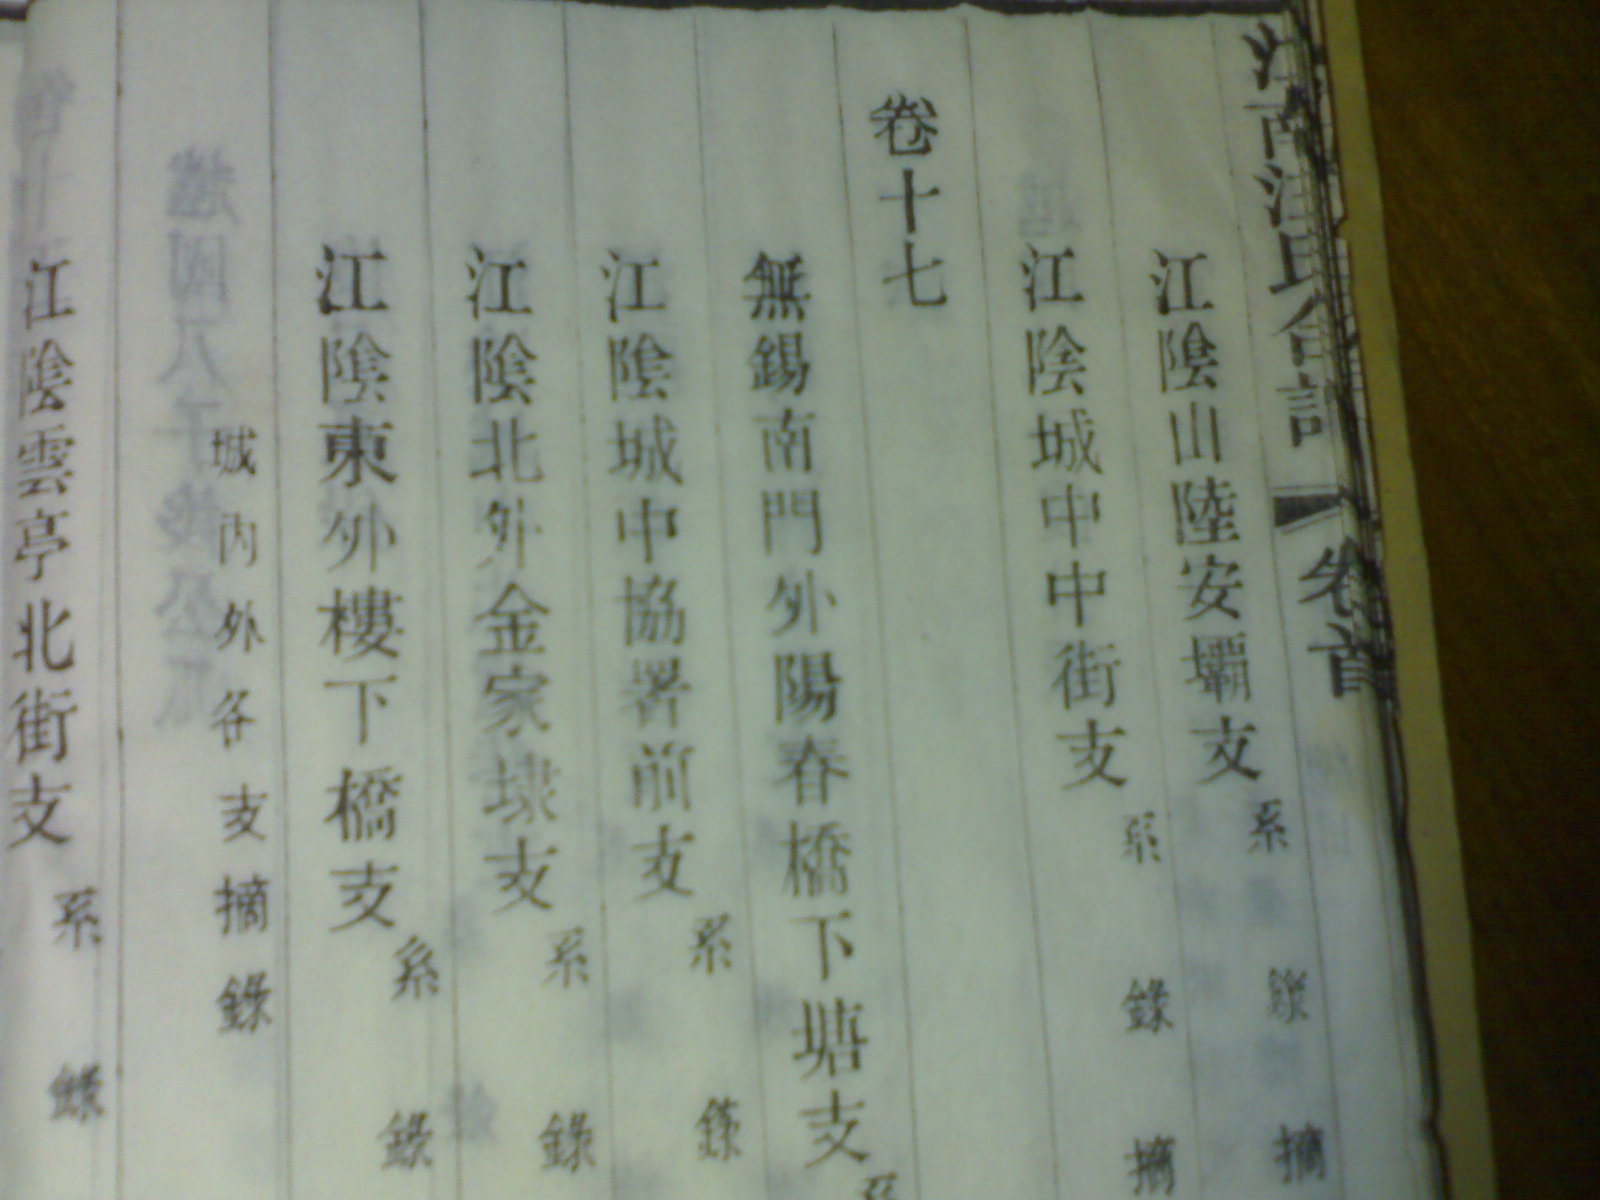 江南汪氏合譜 卷首
江陰山陸安壩支 系 錄 摘
江陰城中中街支 系 錄 摘
卷十七
無錫南門外陽春橋下塘支 系
江陰城中協署前支 系 錄
江陰北外金家埭支 系 錄
江陰東外樓下橋支 系 錄
城內外各支摘錄
江陰雲亭北街支 系 錄